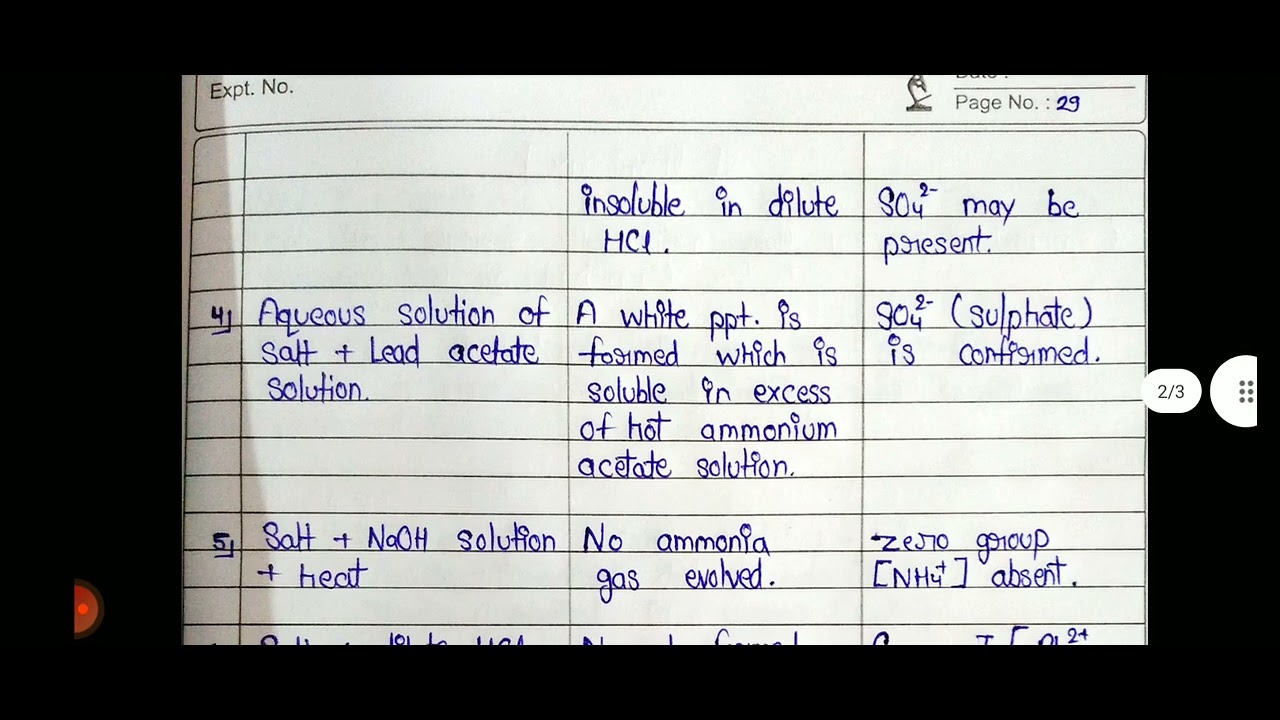 Expt. No.
Date :
Page No. : 29
insoluble in dilute
HCl.
SO4²⁻ may be
present.
4] Aqueous solution of
salt + Lead acetate
solution.
A white ppt. is
formed which is
soluble in excess
of hot ammonium
acetate solution.
SO4²⁻ (sulphate)
is confirmed.
5] Salt + NaOH solution
+ heat
No ammonia
gas evolved.
zero group
[NH4⁺] absent.
2/3